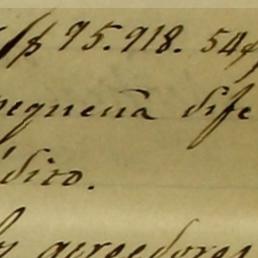 $ 95.918.54
pequeña dife
dito.
acreedores